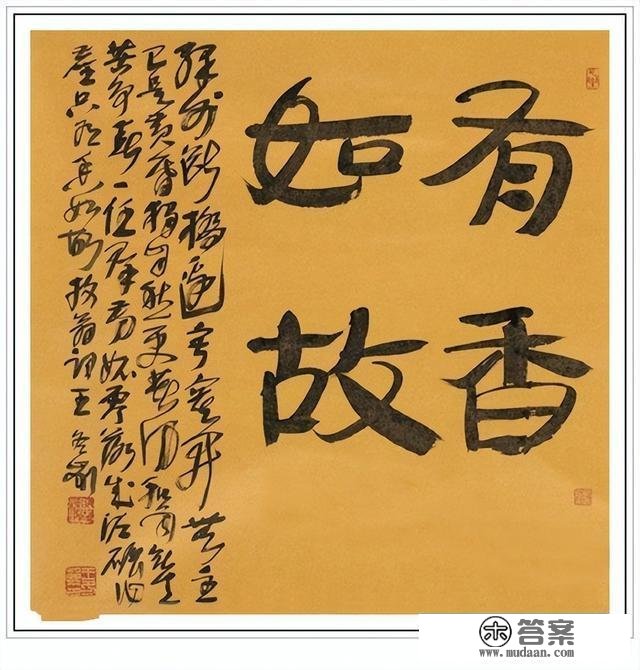 有香
如故
驿外断桥边寂寞开无主
已是黄昏独自愁更著风和雨无意
苦争春一任群芳妒零落成泥碾作
尘只有香如故放翁词王冬龄
答案
www.mudaan.com